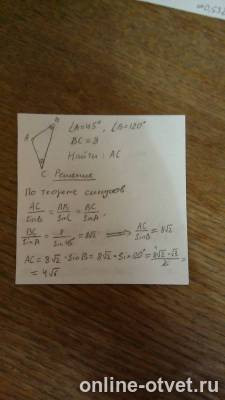 ∠A=45°, ∠B=120°
BC=8
Найти: AC
A
B
C
Решение
По теореме синусов
AC/sinB = AB/sinC = BC/sinA
BC/sinA = 8/sin45 = 8√2 ⟹ AC/sinB = 8√2
AC = 8√2 · sinB = 8√2 · sin120° = 8√2·√3/2 =
= 4√6
online-otvet.ru